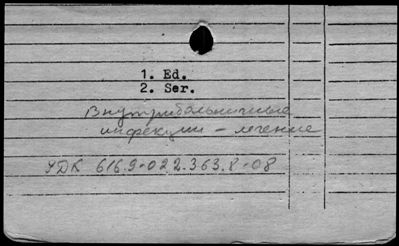 1. Ed.
2. Ser.
Внутрибольничные
инфекции – лечение
УДК 616.9-022.363.8-08